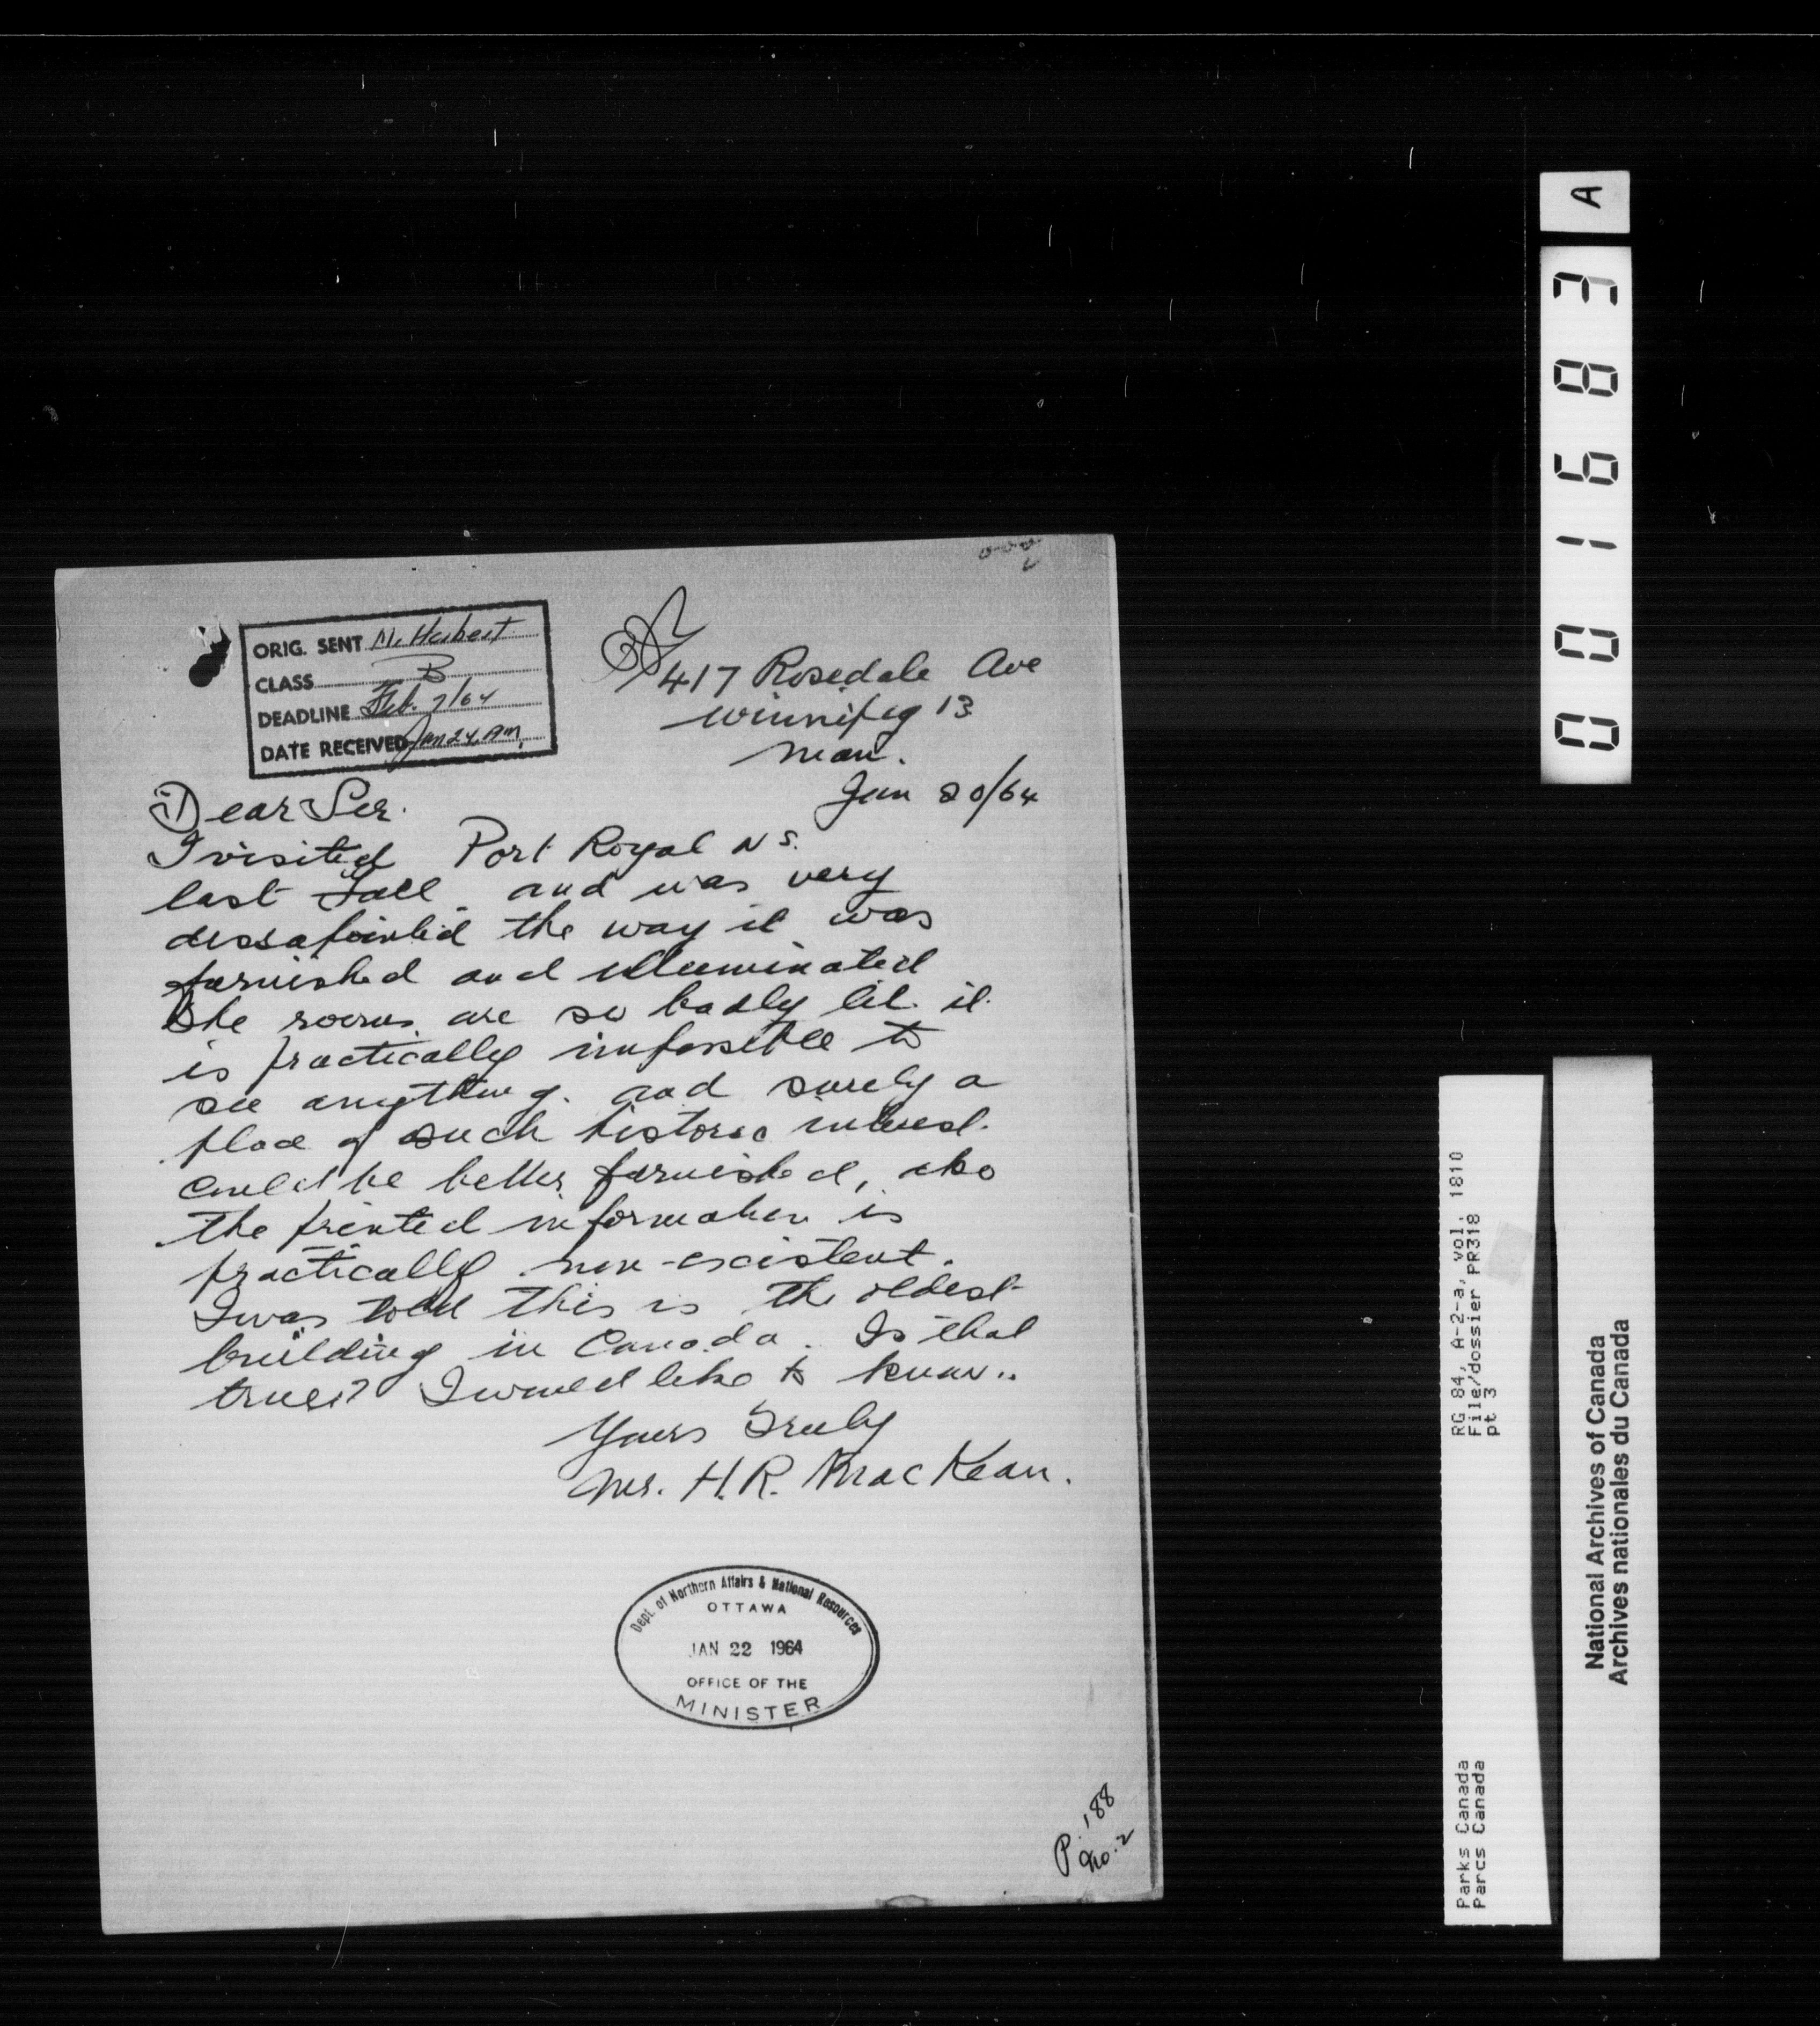 ORIG. SENT Mr. Herbert
CLASS B
DEADLINE Feb. 7/64
DATE RECEIVED Jan 24, AM.
417 Rosedale Ave
Winnipeg 13
Man.
Jan 20/64
Dear Sir.
I visited Port Royal N S.
last Fall and was very
dissapointed the way it was
furnished and illuminated
The rooms are so badly lit it
is practically impossible to
see anything. and surely a
place of such historic interest.
could be better furnished, also
the printed information is
practically non-existent.
I was told this is the oldest
building in Canada. Is that
true? I would like to know..
Yours Truly
Mrs. H.R. MacKean.
Dept. of Northern Affairs & National Resources
OTTAWA
JAN 22 1964
OFFICE OF THE
MINISTER
P. 188
No. 2
001683
A
RG 84, A-2-a, vol. 1810
File/dossier PR318
pt 3
Parks Canada
Parcs Canada
National Archives of Canada
Archives nationales du Canada